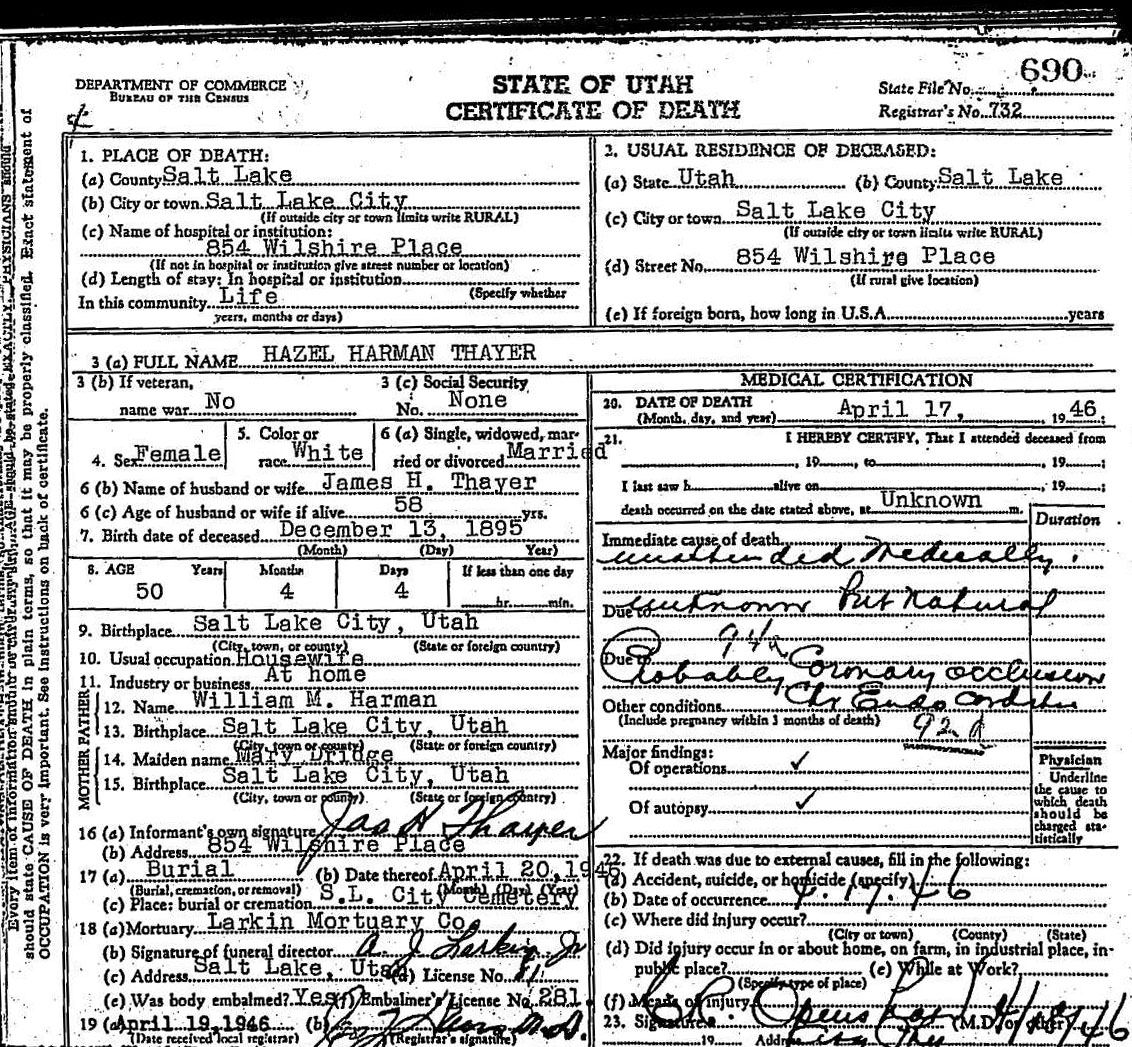 690
DEPARTMENT OF COMMERCE
BUREAU OF THE CENSUS
STATE OF UTAH
CERTIFICATE OF DEATH
State File No.
Registrar's No. 732
should state CAUSE OF DEATH in plain terms, so that it may be properly classified. Exact statement of
OCCUPATION is very important. See instructions on back of certificate.
1. PLACE OF DEATH:
(a) County Salt Lake
(b) City or town Salt Lake City
(If outside city or town limits write RURAL)
(c) Name of hospital or institution:
854 Wilshire Place
(If not in hospital or institution give street number or location)
(d) Length of stay: In hospital or institution
(Specify whether
In this community Life
years, months or days)
2. USUAL RESIDENCE OF DECEASED:
(a) State Utah (b) County Salt Lake
(c) City or town Salt Lake City
(If outside city or town limits write RURAL)
(d) Street No. 854 Wilshire Place
(If rural give location)
(e) If foreign born, how long in U.S.A. years
3 (a) FULL NAME HAZEL HARMAN THAYER
3 (b) If veteran,
name war No
3 (c) Social Security
No. None
4. Sex Female
5. Color or
race White
6 (a) Single, widowed, mar-
ried or divorced Married
6 (b) Name of husband or wife James H. Thayer
6 (c) Age of husband or wife if alive 58 yrs.
7. Birth date of deceased December 13, 1895
(Month) (Day) Year)
8. AGE Years Months Days If less than one day
50 4 4 hr. min.
9. Birthplace Salt Lake City, Utah
(City, town, or county) (State or foreign country)
10. Usual occupation Housewife
11. Industry or business At home
FATHER
12. Name William M. Harman
13. Birthplace Salt Lake City, Utah
(City, town or county) (State or foreign country)
MOTHER
14. Maiden name Mary Dridge
15. Birthplace Salt Lake City, Utah
(City, town or county) (State or foreign country)
16 (a) Informant's own signature Jas H Thayer
(b) Address 854 Wilshire Place
17 (a) Burial (b) Date thereof April 20, 1946
(Burial, cremation, or removal) (Month) (Day) (Year)
(c) Place: burial or cremation S.L. City Cemetery
18 (a) Mortuary Larkin Mortuary Co
(b) Signature of funeral director A. J. Larkin Jr
(c) Address Salt Lake, Utah (d) License No. 81
(e) Was body embalmed? Yes (f) Embalmer's License No. 281
19 (a) April 19, 1946 (b)
(Date received local registrar) (Registrar's signature)
MEDICAL CERTIFICATION
20. DATE OF DEATH
(Month, day, and year) April 17, 1946
21. I HEREBY CERTIFY, That I attended deceased from
, 19 , to , 19 ;
I last saw h alive on , 19 ;
death occurred on the date stated above, at Unknown m.
Duration
Immediate cause of death
unattended Medically.
Due to unknown but Natural
94a
Due to Probably Coronary occlusion
Other conditions Chr Endo
(Include pregnancy within 3 months of death)
92
Major findings:
Of operations ✓
Of autopsy ✓
Physician
Underline
the cause to
which death
should be
charged sta-
tistically
22. If death was due to external causes, fill in the following:
(a) Accident, suicide, or homicide (specify)
(b) Date of occurrence 4.17.46
(c) Where did injury occur?
(City or town) (County) (State)
(d) Did injury occur in or about home, on farm, in industrial place, in-
public place? (e) While at Work?
(Specify type of place)
(f) Means of injury
23. Signature (M.D. or other) 4/19/46
19 Address